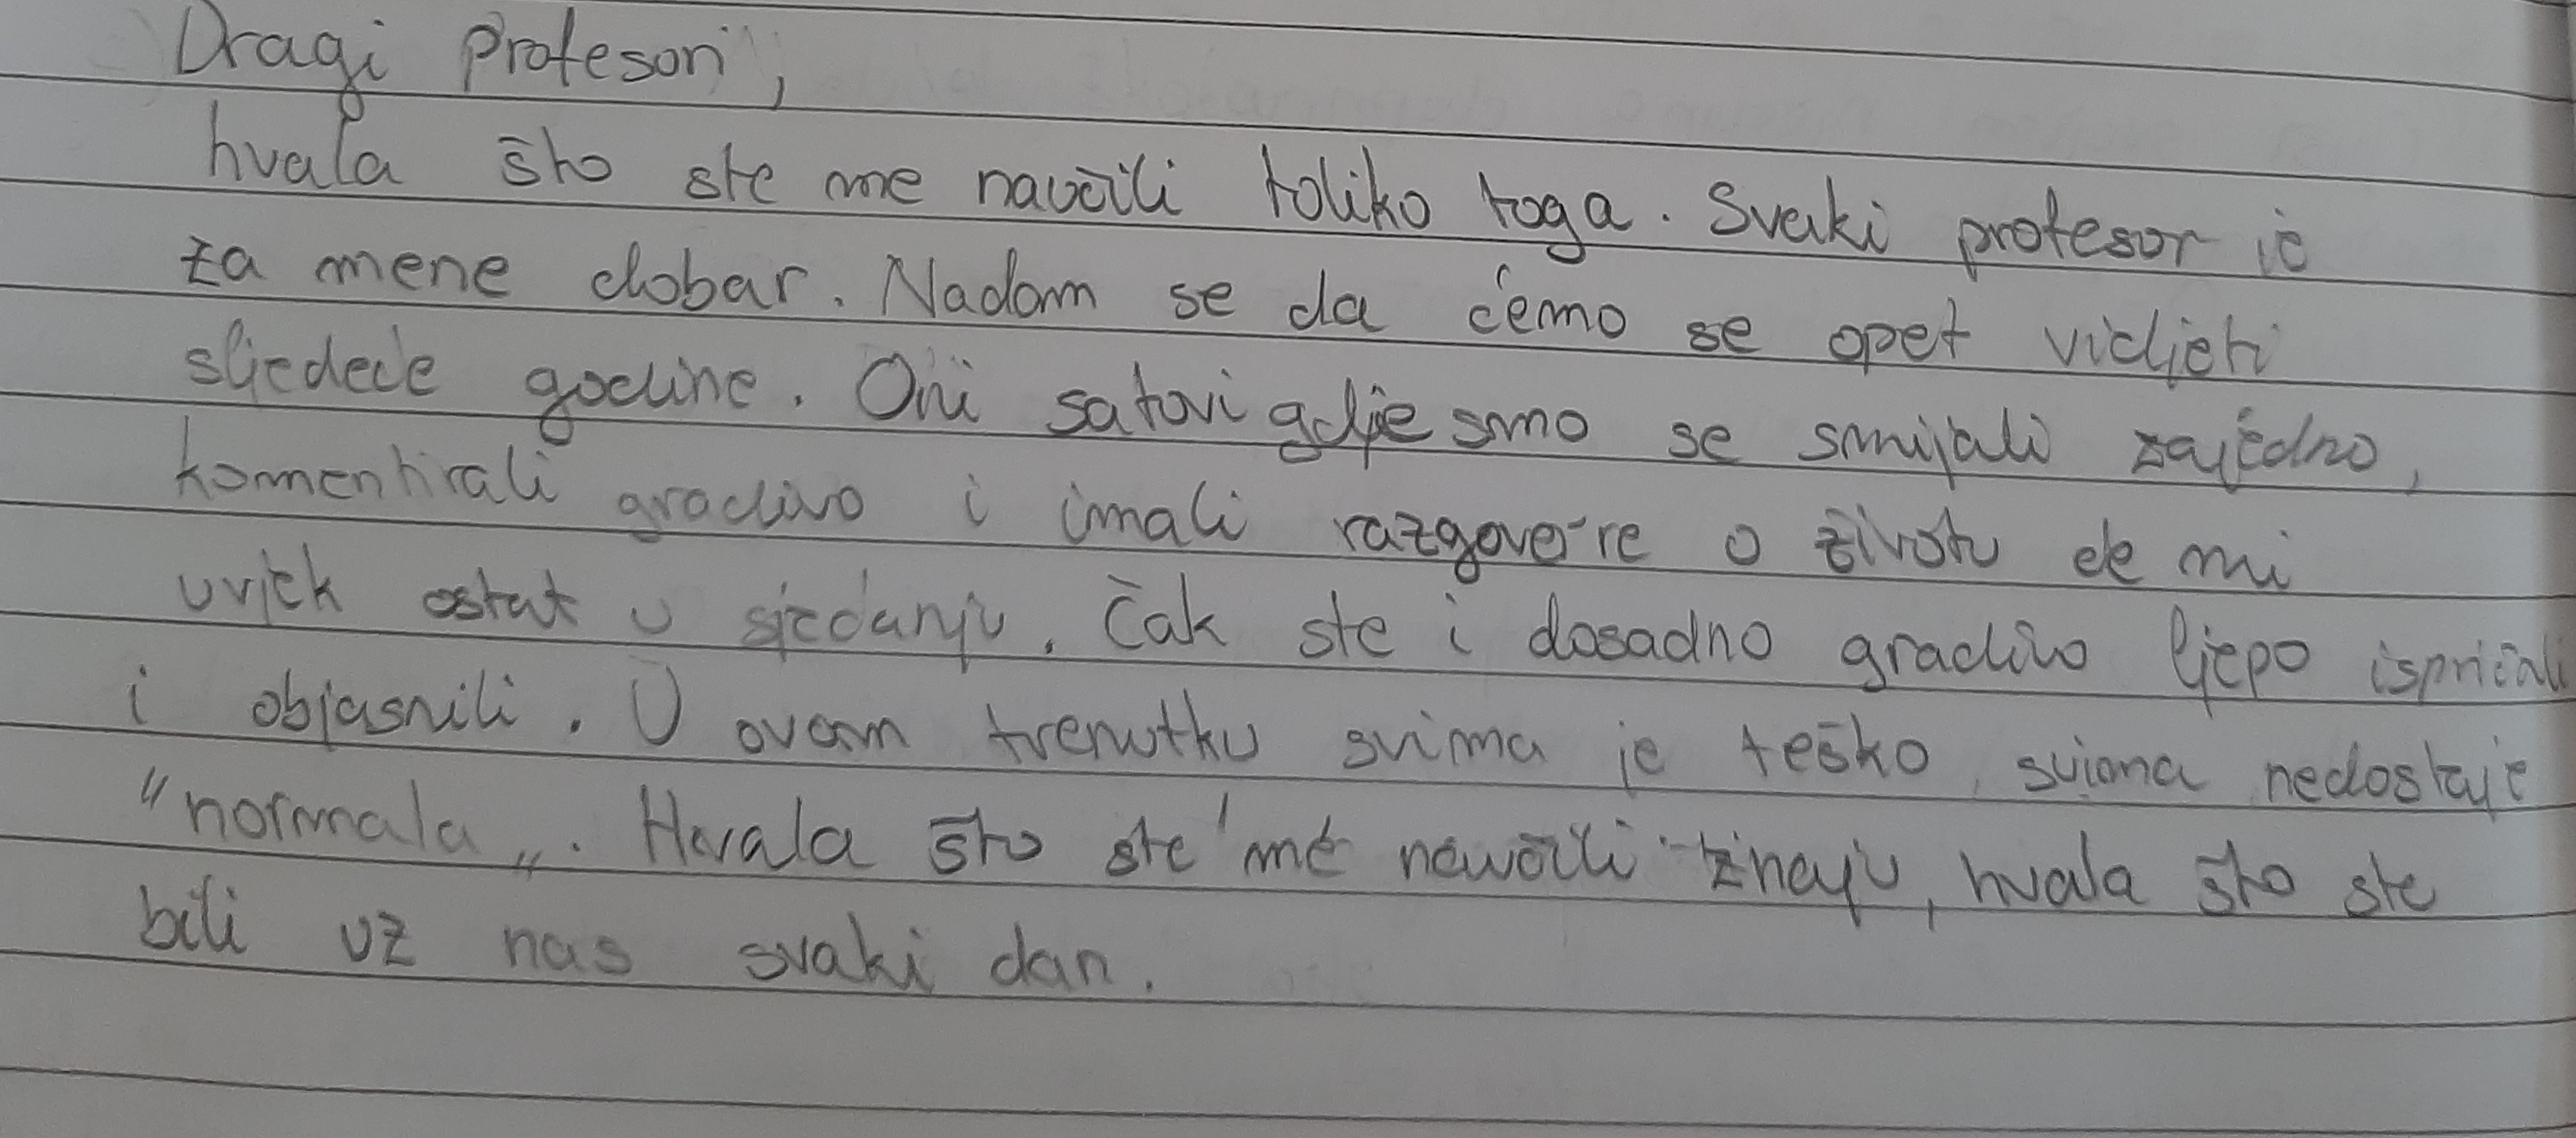 Dragi profesori,
hvala što ste me naučili toliko toga. Svaki profesor je
za mene dobar. Nadam se da ćemo se opet vidjeti
sljedeće godine. Oni satovi gdje smo se smijali zajedno,
komentirali gradivo i imali razgovore o životu će mi
uvjek ostat u sjećanju. Čak ste i dosadno gradivo ljepo ispričali
i objasnili. U ovom trenutku svima je teško, svima nedostaje
"normala„. Hvala što ste me naučili znaju, hvala što ste
bili uz nas svaki dan.